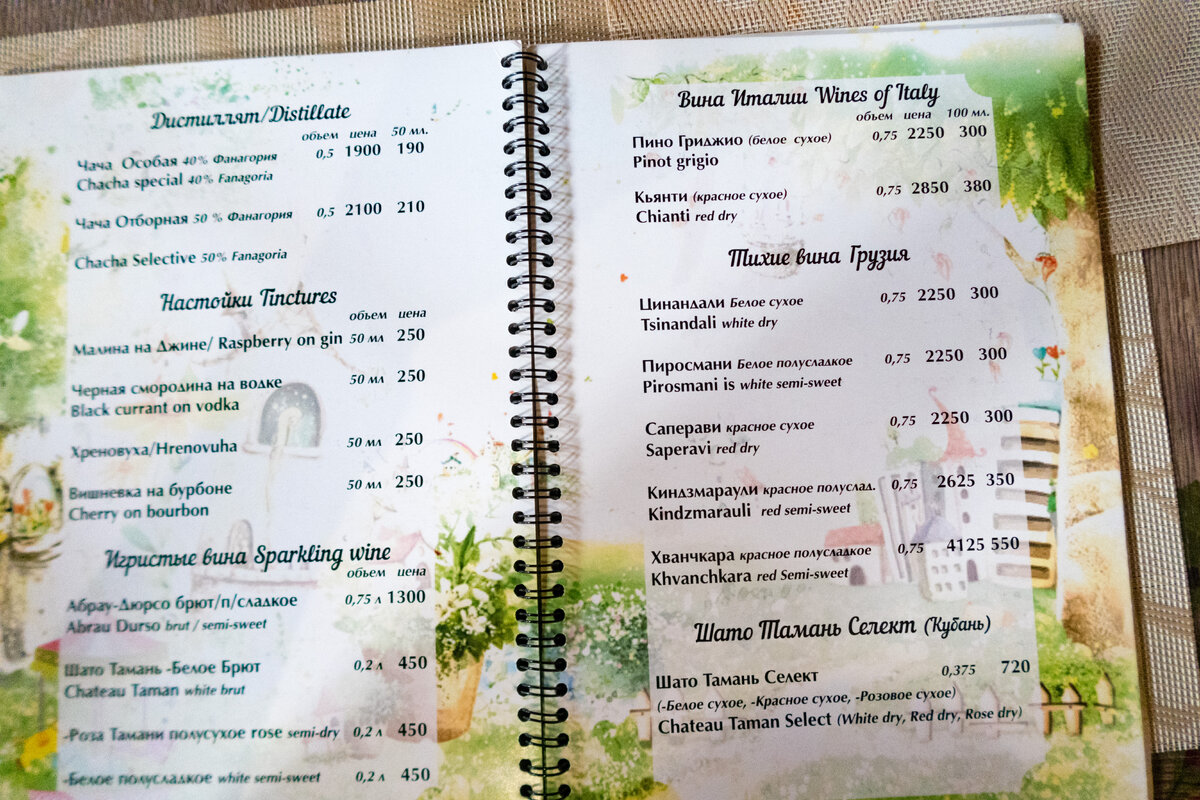 Дистиллят/Distillate
объем цена 50 мл.
Чача Особая 40% Фанагория 0,5 1900 190
Chacha special 40% Fanagoria
Чача Отборная 50 % Фанагория 0,5 2100 210
Chacha Selective 50% Fanagoria
Настойки Tinctures
объем цена
Малина на Джине/ Raspberry on gin 50 мл 250
Черная смородина на водке 50 мл 250
Black currant on vodka
Хреновуха/Hrenovuha 50 мл 250
Вишневка на бурбоне 50 мл 250
Cherry on bourbon
Игристые вина Sparkling wine
объем цена
Абрау-Дюрсо брют/п/сладкое 0,75 л 1300
Abrau Durso brut / semi-sweet
Шато Тамань -Белое Брют 0,2 л 450
Chateau Taman white brut
-Роза Тамани полусухое rose semi-dry 0,2 л 450
-Белое полусладкое white semi-sweet 0,2 л 450
Вина Италии Wines of Italy
объем цена 100 мл.
Пино Гриджио (белое сухое) 0,75 2250 300
Pinot grigio
Кьянти (красное сухое) 0,75 2850 380
Chianti red dry
Тихие вина Грузия
Цинандали Белое сухое 0,75 2250 300
Tsinandali white dry
Пиросмани Белое полусладкое 0,75 2250 300
Pirosmani is white semi-sweet
Саперави красное сухое 0,75 2250 300
Saperavi red dry
Киндзмараули красное полуслад. 0,75 2625 350
Kindzmarauli red semi-sweet
Хванчкара красное полусладкое 0,75 4125 550
Khvanchkara red Semi-sweet
Шато Тамань Селект (Кубань)
Шато Тамань Селект 0,375 720
(-Белое сухое, -Красное сухое, -Розовое сухое)
Chateau Taman Select (White dry, Red dry, Rose dry)